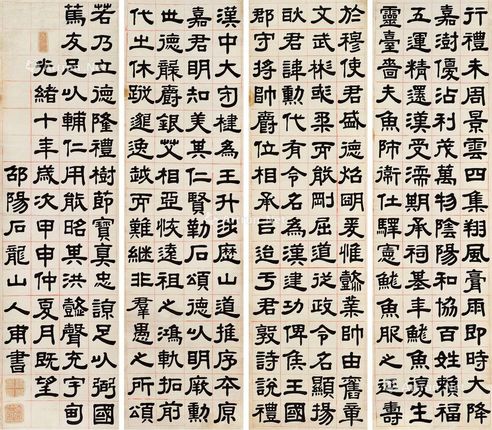 行禮未周景雲四集翔風膏雨即時大降
嘉澍優沾利茂萬物陰陽和協百姓賴福
五運精還漢受濡期承祠基魚復生
靈臺嗇夫魚師衛仕驛憲魚服之延壽
於穆使君盛德焰明爰惟懿業帥由舊章
文武彬彧柔而能剛屈道從政令名顯揚
耿君諱勳代有令名為漢建功俾侯王國
郡守將帥爵位相承㠯迄于君敦詩說禮
漢中大守楗為王升涉歷山道推序本原
嘉君明知美其仁賢勒石頌德以明厥勳
世德襲爵銀艾相亞恢遠祖之鴻軌拓前
代之休蹤邈逸越而難繼非羣愚之所頌
若乃立德隆禮樹節寶真忠諒足以弼國
篤友足以輔仁用能昭其洪懿聲充宇甸
光緒十年歲次甲申仲夏月既望
邵陽石龍山人甫書